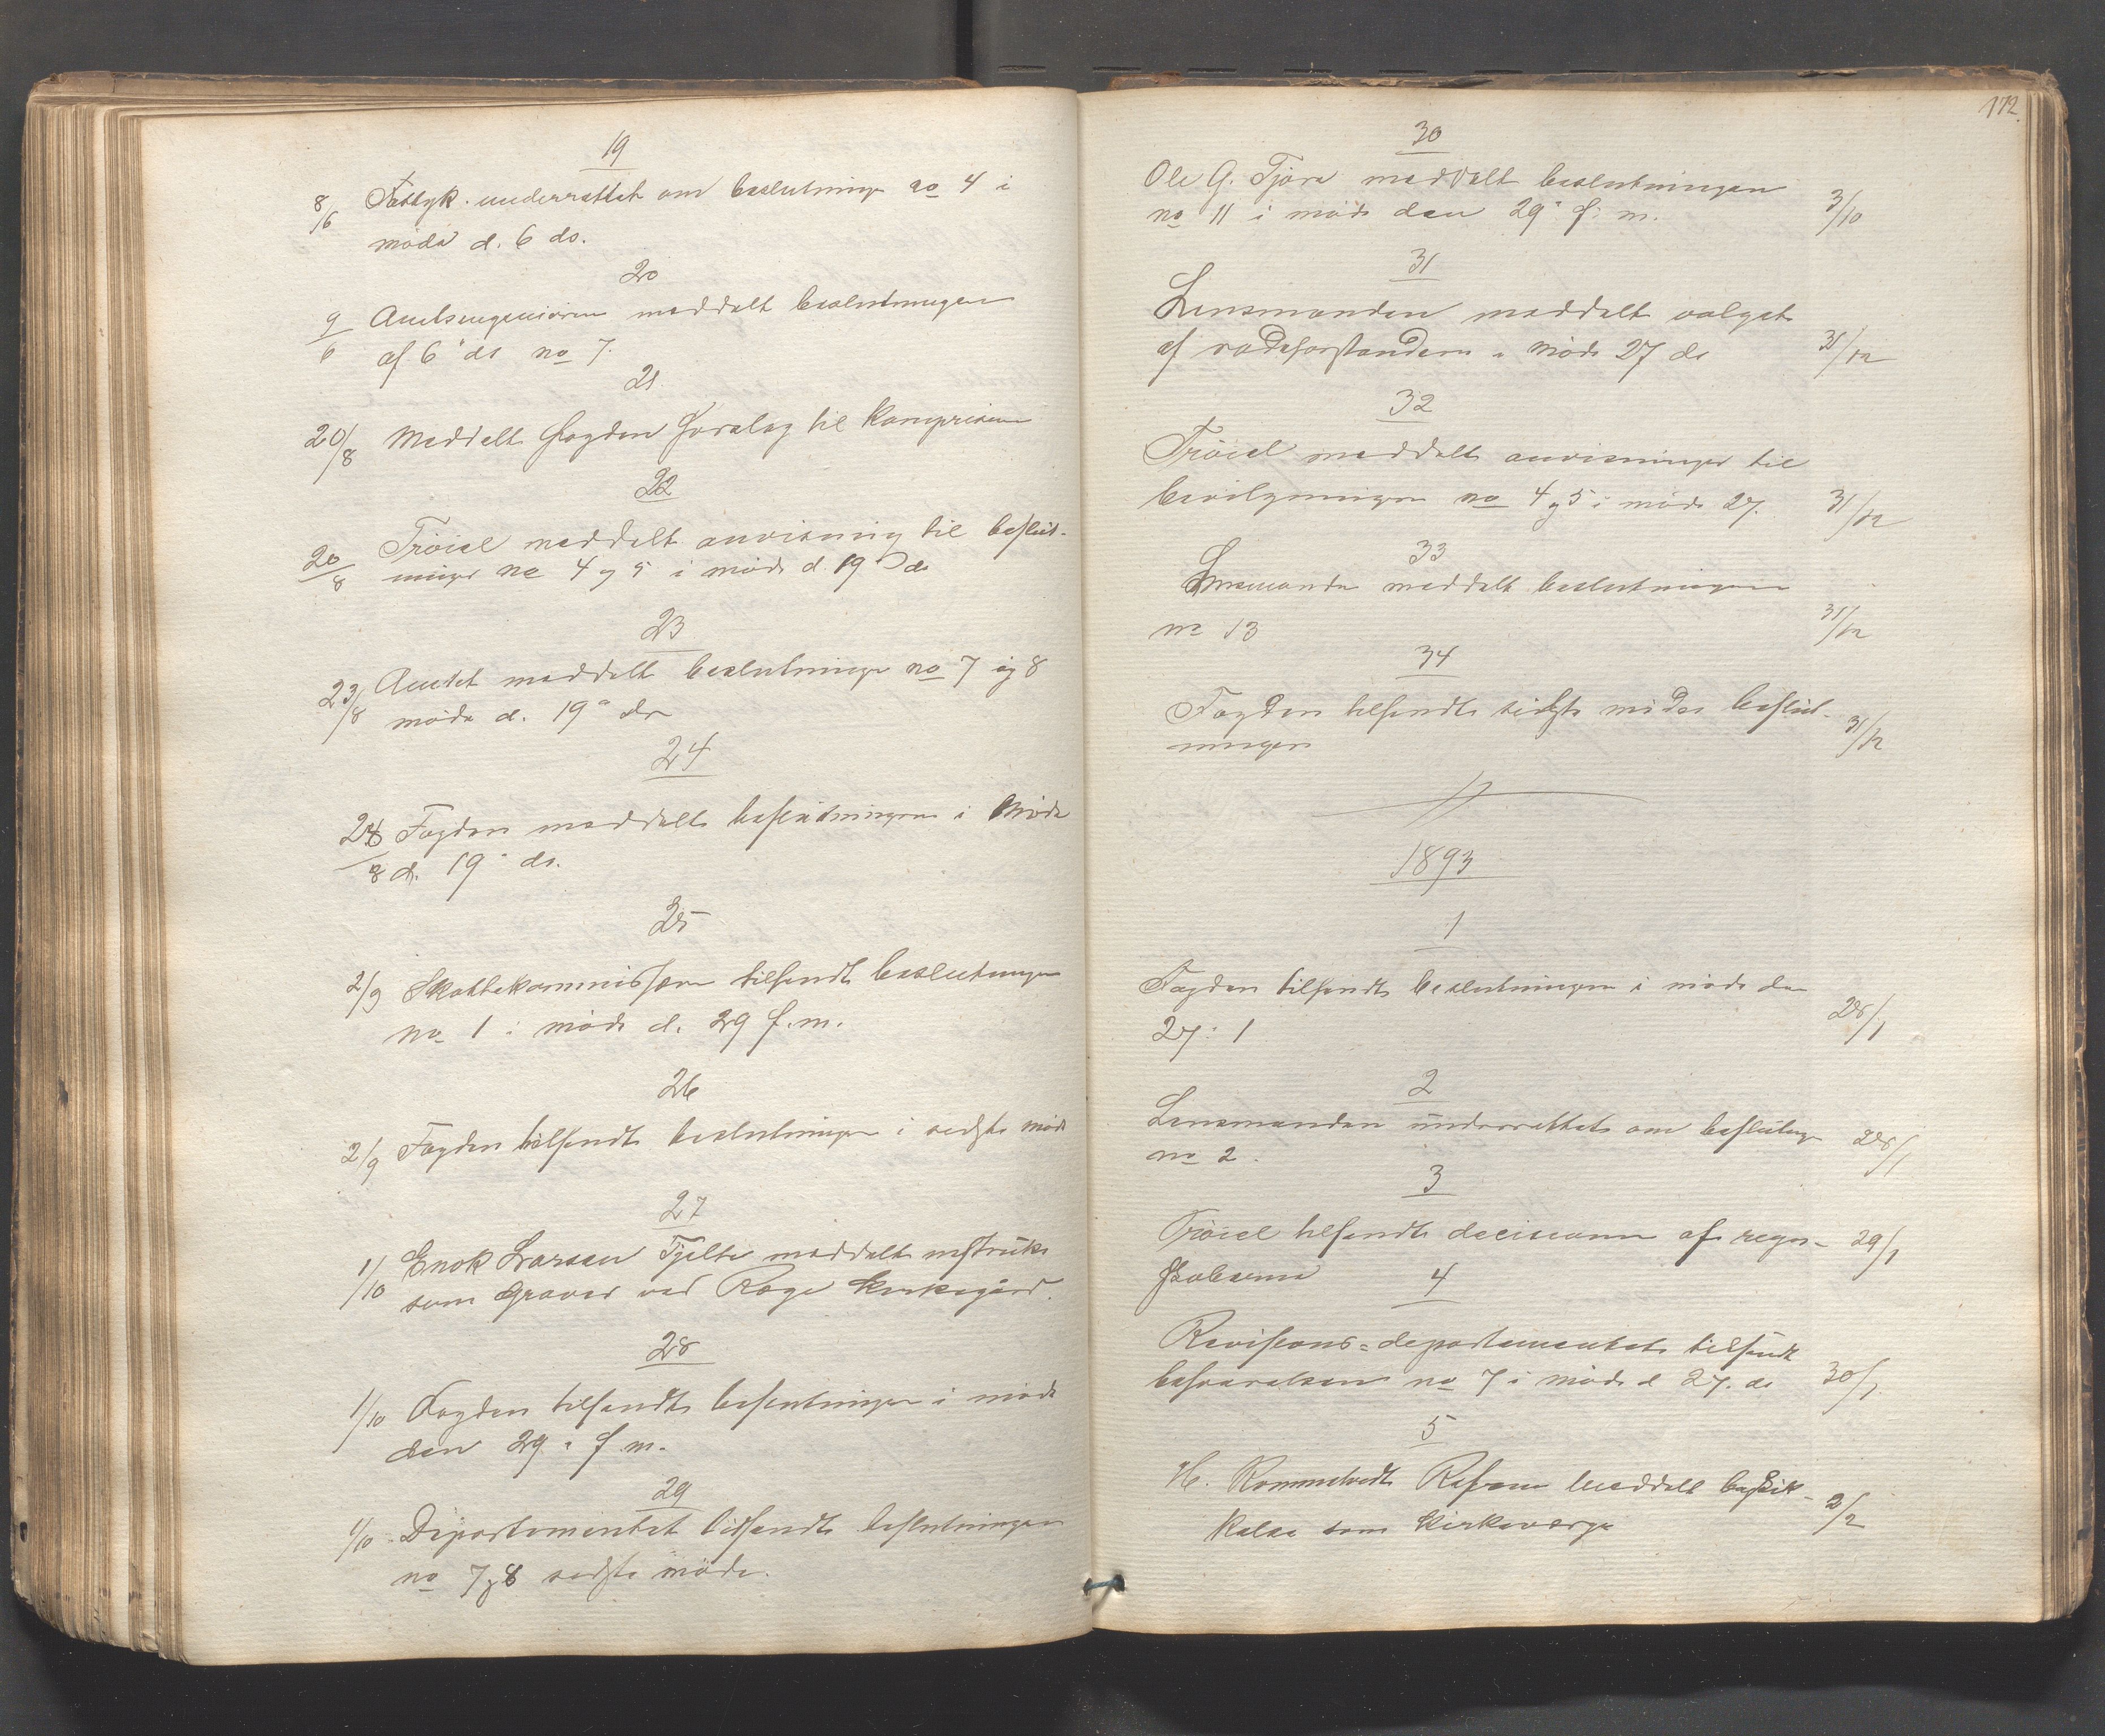 19
8/6 Fattgk. underrettet om beslutninge no 4 i
møde d. 6 ds.
20
9/6 Amtsingeniøren meddelt beslutningen
af 6" ds no 7.
21
20/8 Meddelt Fogden Forslag til
22
20/8 Trøiel meddelt anvisning til beslut-
ninger no 4 og 5 i møde d. 19 ds
23
23/8 Amtet meddelt beslutninge no 7 og 8
møde d. 19" ds
24
Fogden meddelt beslutningene i Møde
8 d. 19" ds.
25
2/9 Skattekommissæren tilsendt beslutningen
no 1 i møde d. 29 f.m.
26
2/9 Fogden tilsendt beslutninger i sidste møde
27
1/10 Enok Larsen Tjelta meddelt instruks
som graver ved Rege kirkegård.
28
1/10 Fogden tilsendt beslutninger i møde
den 29" f.m.
29
1/10 Departementet tilsendt beslutningen
no 7 og 8 sidste møde.
172.
30
Ole G. Tjøra meddelt beslutningen
no 11 i møde den 29" f.m. 3/10
31
Lensmanden meddelt valget
af rodeforstandere i møde 27 ds 31/12
32
Trøiel meddelt anvisninger til
bevilgningen no 4 og 5 i møde 27. 31/12
33
Lensmanden meddelt beslutningen
no 13 31/12
34
Fogden tilsendt sidste mødes beslut-
ninger 31/12
1893
1
Fogden tilsendt beslutningen i møde den
27: 1 28/1
2
Lensmanden underrettet om beslutning
no 2. 28/1
3
Trøiel tilsendt decisionen af regn-
skaberne 29/1
4
Revisions-departementet tilsendt
besvarelsen no 7 i møde d 27. ds 30/1
5
H. Rommetvedt Refsnes meddelt beskik-
kelse som kirkeverge 2/2